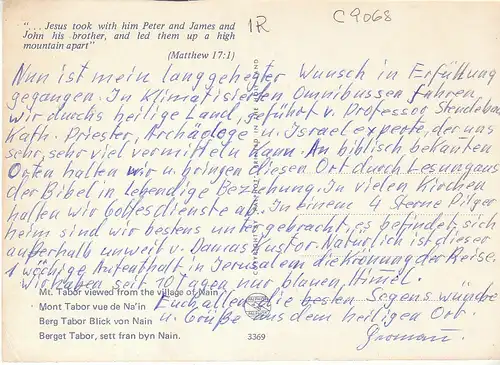 "...Jesus took with him Peter and James and
John his brother, and led them up a high
mountain apart"
(Matthew 17:1)
1R
C9068
Nun ist mein langgehegter Wunsch in Erfüllung
gegangen. In klimatisierten Omnibussen fahren
wir durchs heilige Land, geführt v. Professor
Kath. Priester, Archäologe u. Israelexperte, der uns
sehr, sehr viel vermitteln kann. An biblisch bekannten
Orten halten wir u. bringen diesen Ort durch Lesung aus
der Bibel in lebendige Beziehung. In vielen Kirchen
halten wir Gottesdienste ab. In einem 4 Sterne Pilger
heim sind wir bestens untergebracht, es befindet sich
außerhalb unweit v. Damaskustor. Natürlich ist dieser
1 wöchige Aufenthalt in Jerusalem die Krönung der Reise.
Wir haben seit 10 Tagen nur blauen Himmel.
Euch allen die besten Segenswünsche
u. Grüße aus dem heiligen Ort.
Mt. Tabor viewed from the village of Nain
Mont Tabor vue de Na'in
Berg Tabor Blick von Nain
Berget Tabor, sett fran byn Nain.
3369